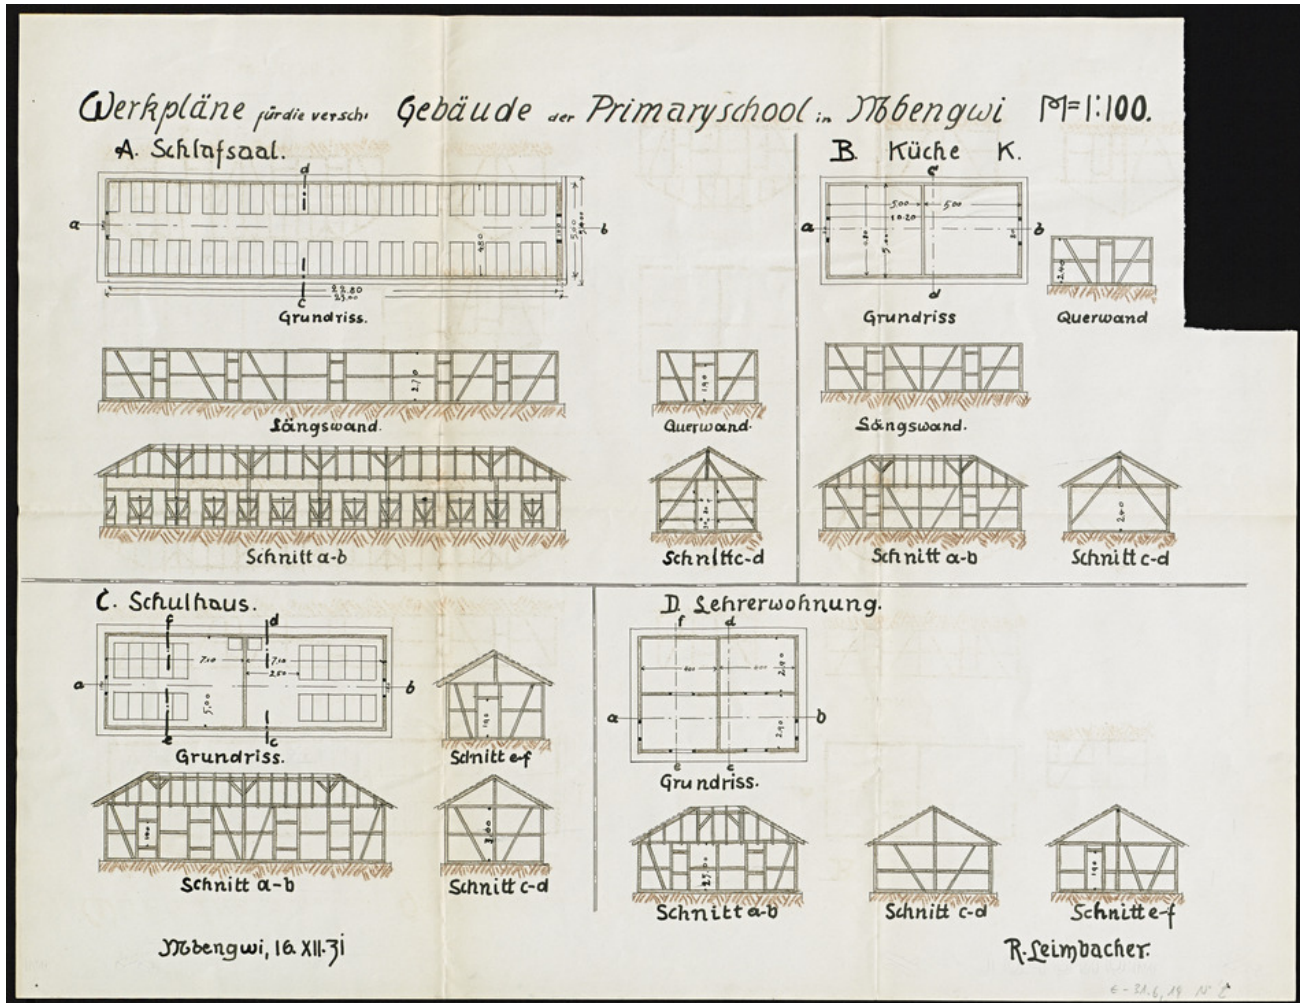 Werkpläne für die versch. Gebäude der Primaryschool in Mbengwi M=1:100.
A. Schlafsaal.
d
a
b
4.80
5.00
22.80
23.00
c
Grundriss.
2.70
Längswand.
1.90
Querwand.
Schnitt a-b
Schnitt c-d
B. Küche K.
c
a
5.00
5.00
10.20
b
d
Grundriss
2.40
Querwand
Längswand.
Schnitt a-b
2.40
Schnitt c-d
C. Schulhaus.
f
d
7.10
7.10
2.50
a
b
5.00
e
c
Grundriss.
1.90
Schnitt e-f
Schnitt a-b
Schnitt c-d
D. Lehrerwohnung.
f
d
2.90
a
b
2.90
e
c
Grundriss.
Schnitt a-b
Schnitt c-d
1.90
Schnitt e-f
Mbengwi, 16. XII. 31
R. Leimbacher.